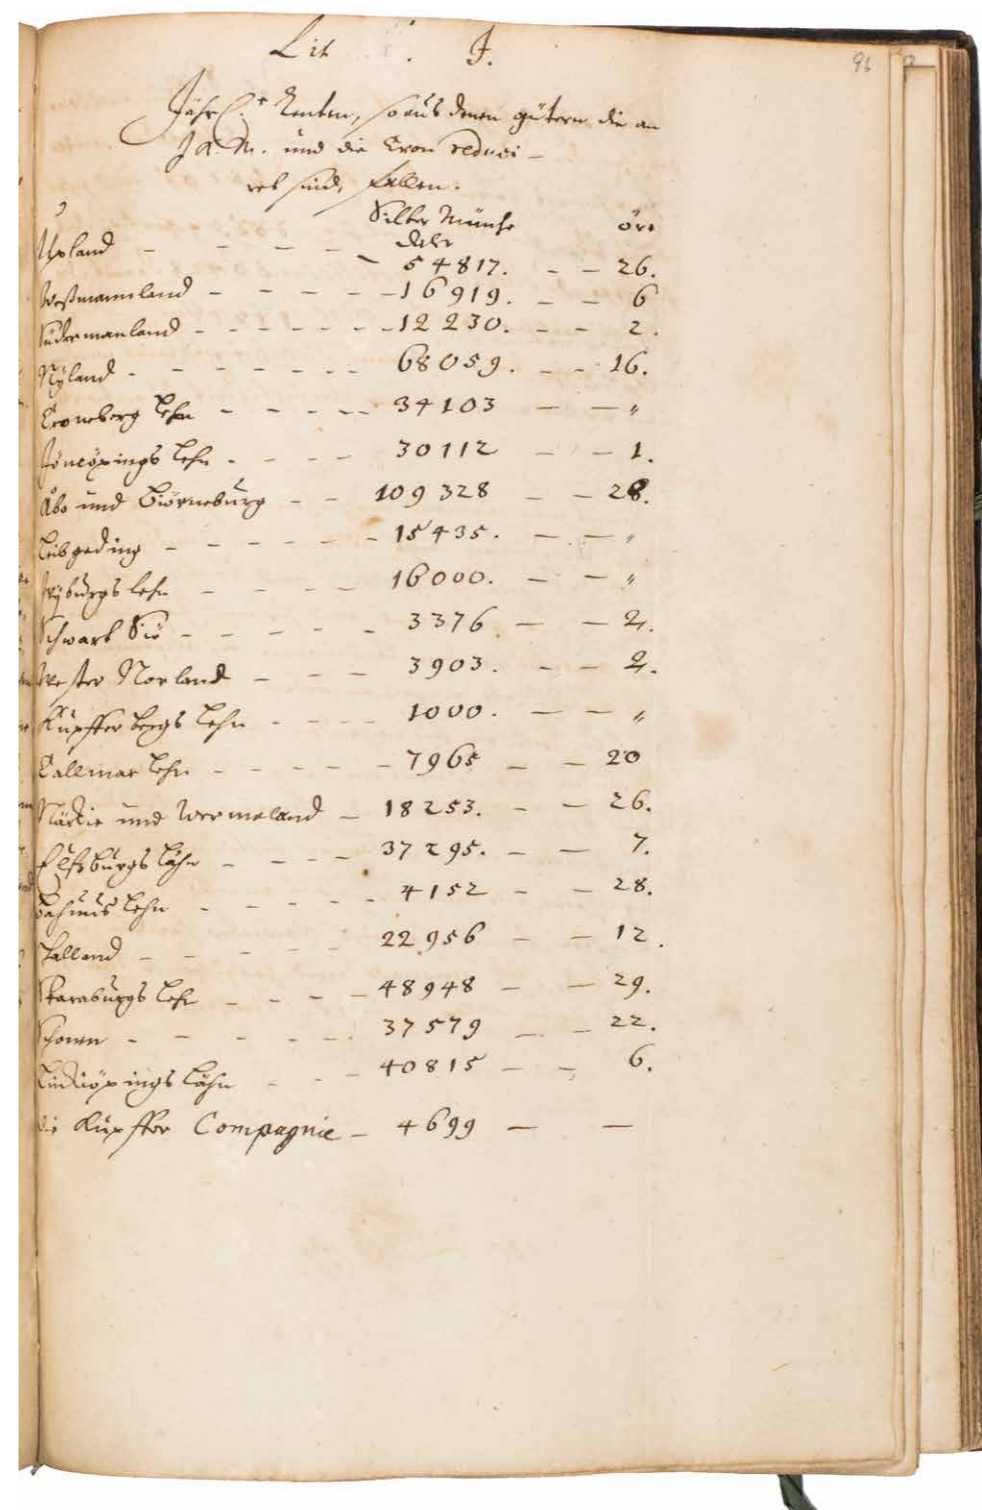 Lit J.
96
Jährl. Renten, so aus denen gütern die an
J K. M. und die Cron reduci-
ret sind, fallen.
Silber Müntze öre
daler
Upland - - - - - 54817. - - 26.
Westmannland - - - - - 16919. - - 6
Südermanland - - - - - - 12230. - - 2.
Nyland - - - - - - - 68059. - - 16.
Croneberg Lehn - - - - 34103 - - "
Jöncöpings Lehn - - - - 30112 - - 1.
Åbo und Biörneburg - - 109328 - - 28.
Leibgeding - - - - - - 15435. - - "
Wyburgs lehn - - - - 16000. - - "
Schwart Siö - - - - - 3376 - - 2.
Wester Norland - - - 3903. - - 2.
Kupfferbergs Lehn - - - - 1000. - - "
Callmar Lehn - - - - - 7965 - - 20
Närkie und Wermeland - 18253. - - 26.
Elfsburgs Lähn - - - - 37295. - - 7.
Bahuus Lehn - - - - - 4152 - - 28.
Halland - - - - - 22956 - - 12.
Skaraburgs Lehn - - - - 48948 - - 29.
Schonen - - - - - 37579 - - 22.
Linkiöpings Lähn - - - 40815 - - 6.
die Kupffer Compagnie - 4699 - -